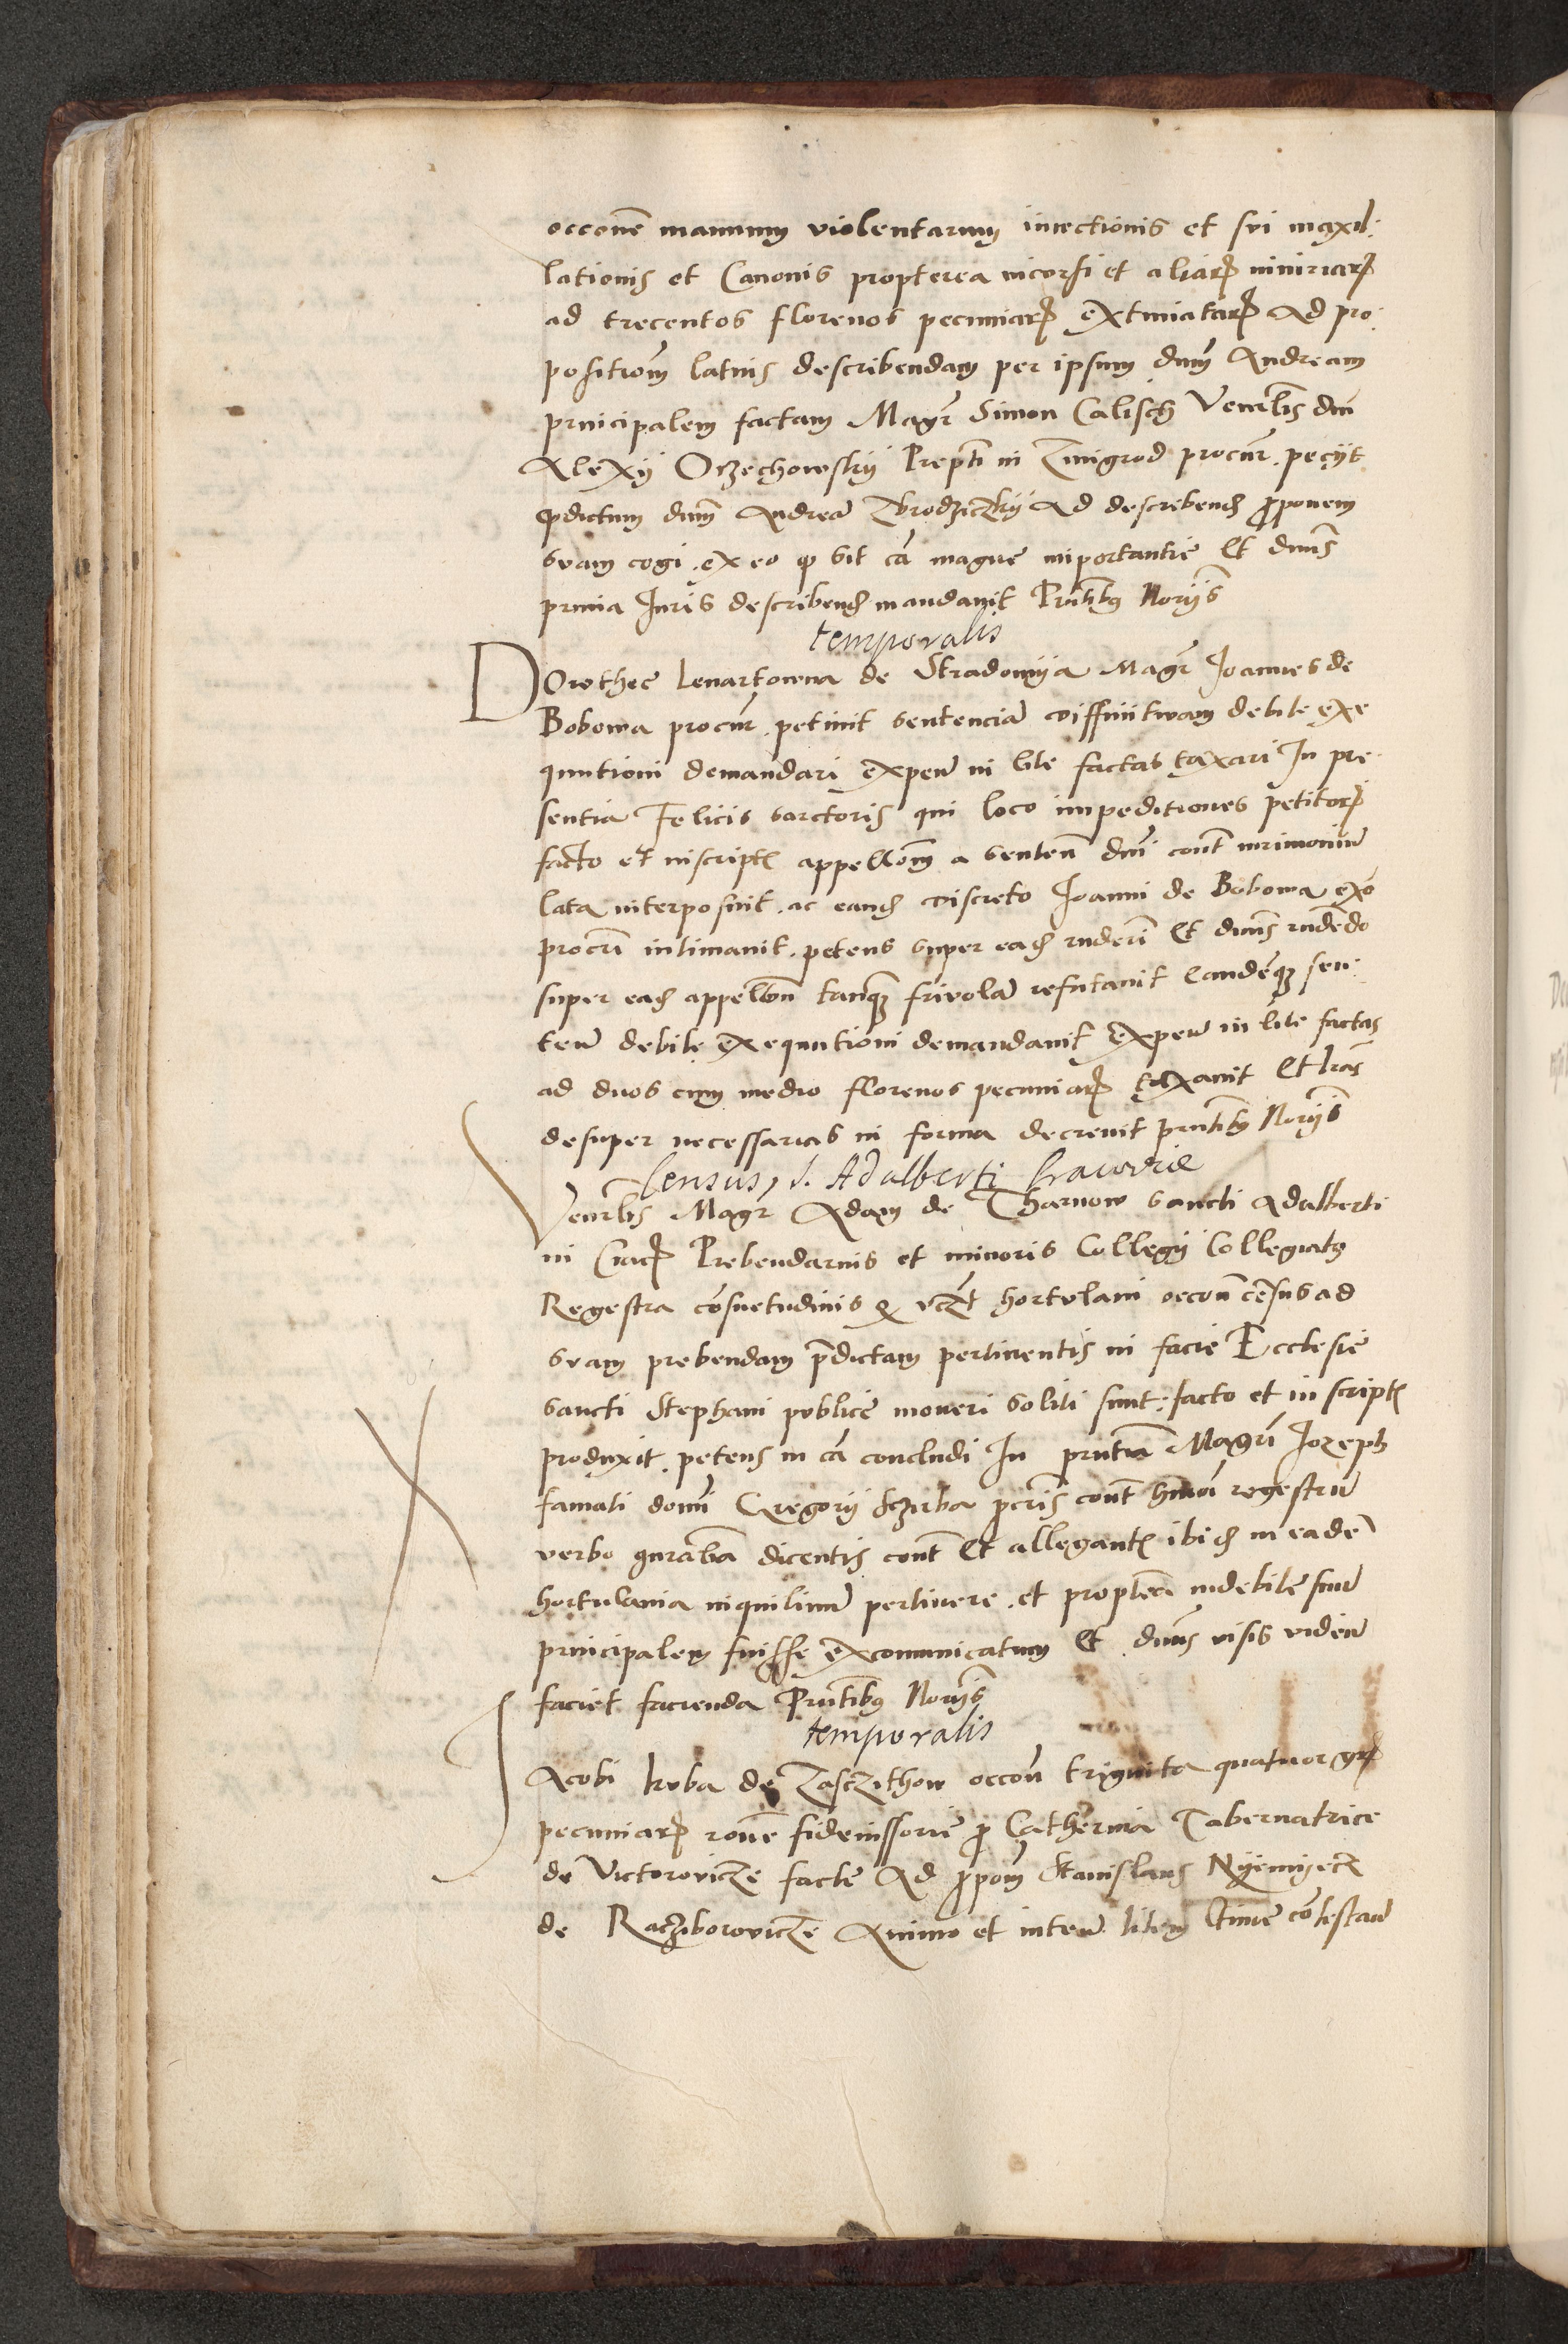 occonem manuum violentarum iniectionis et sui maxil:
lationis et Canonis propterea incorsi et aliar iniuriar
ad trecentos florenos pecuniar extimatar Ad pro:
positiom latius describendam per ipsum dnm Andream
principalem factam Magr Simon Calisch Venrlis dni
Alexÿ Orzechowskÿ Prepti in Zmigrod procur. pecÿt
pdictum dnm Andrea Brodziczkÿ Ad describend pponem
suam cogi. ex eo q sit ca magne importantie Et dnus
prima Juris describend mandauit Pntibus Norÿs
temporalis
DOrothee Lenartowna de Stradomÿa Magr Joannes de
Bobowa procur. petiuit sentencia diffinitiuam debite exe
qutioni demandari expen in lite factas taxari In pre
sentia Felicis sartoris qui loco impeditiones petitor
facto et inscript appellom a senten dni cont mrimoniu
lata interposuit. ac eand discreto Joanni de Bobowa exo
procri intimauit. petens super ead rnderi Et dnus rndedo
super ead appellon tanq friuola refutauit Eandeq sen:
ten debite exequtioni demandauit expen in lite factas
ad duos cum medio florenos pecuniar taxauit Et lras
desuper necessarias in forma decreuit pntibus Norÿs
Census, S. Adalberti Cracoviae
Venrlis Magr Adam de Tharnow sancti Adalberti
in Crac Prebendarius et minoris Collegÿ Collegiatus
Regestra cosuetudinis hortulani occon census ad
suam prebendam pdictam pertinentis in facie Ecclesie
sancti Stephani publice moneri soliti sunt: facto et in script
produxit. petens in ca concludi In pntia Magri Jozeph
famati domi Gregorÿ Sczirba pcris cont hmoi regestru
verbo gnralia dicentis cont Et allegant ibid in eade
hortulania inquilinu pertinere. et propterea indebite suu
principalem fuisse excomunicatum Et dnus visis viden
faciet facienda Pntibus Norÿs
temporalis
JAcobi kuba de Zasczithow occon triginta quatuor gr
pecuniar rone fideiussorie p Catherina Tabernatrice
de Victorovicze facte Ad ppom Stanislaus Nÿemÿecz
de Racziborovicze Animo et inten litem cotestan